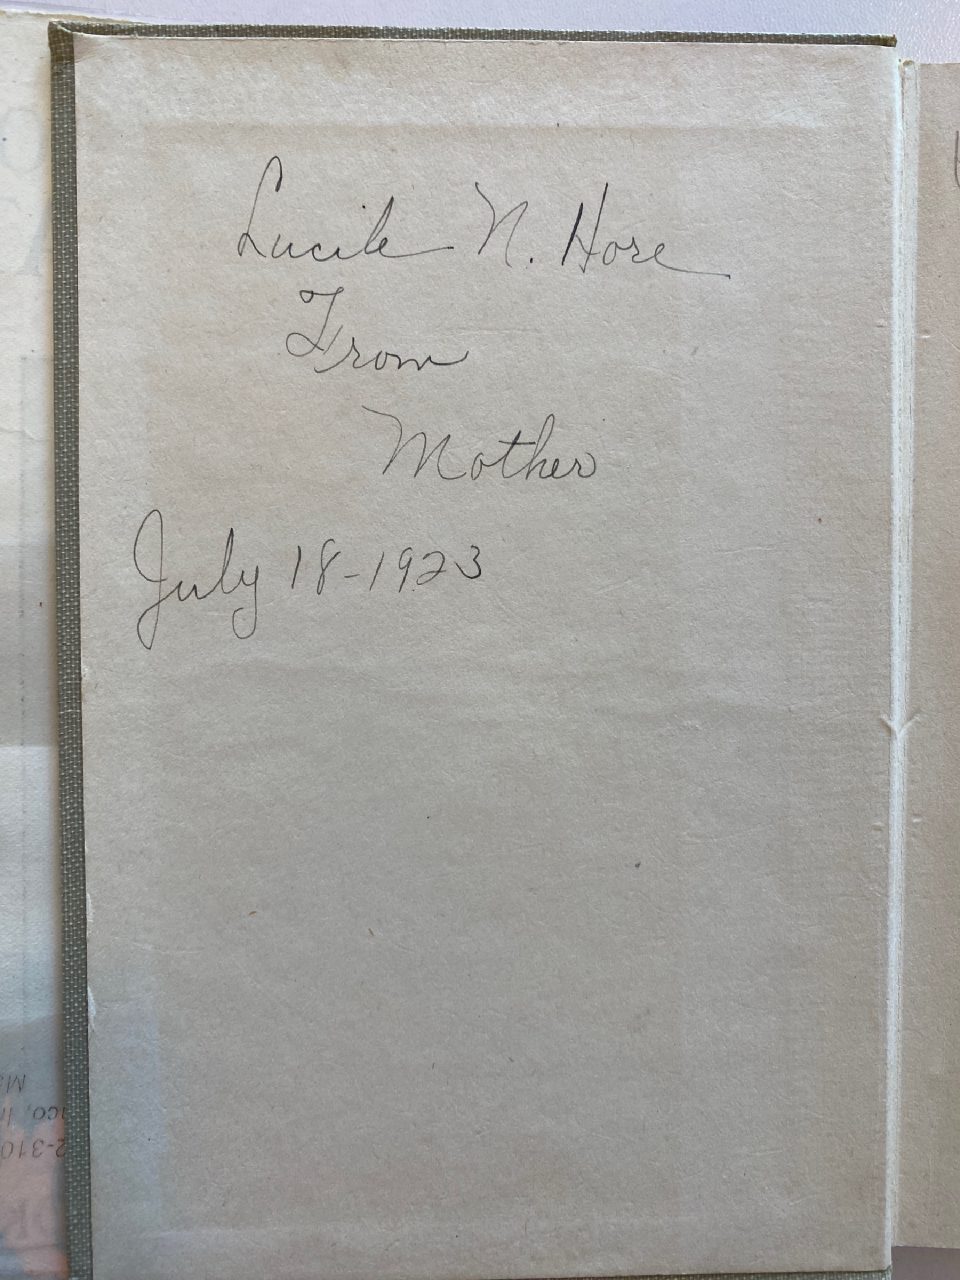 Lucile N. Hore
From
Mother
July 18-1923